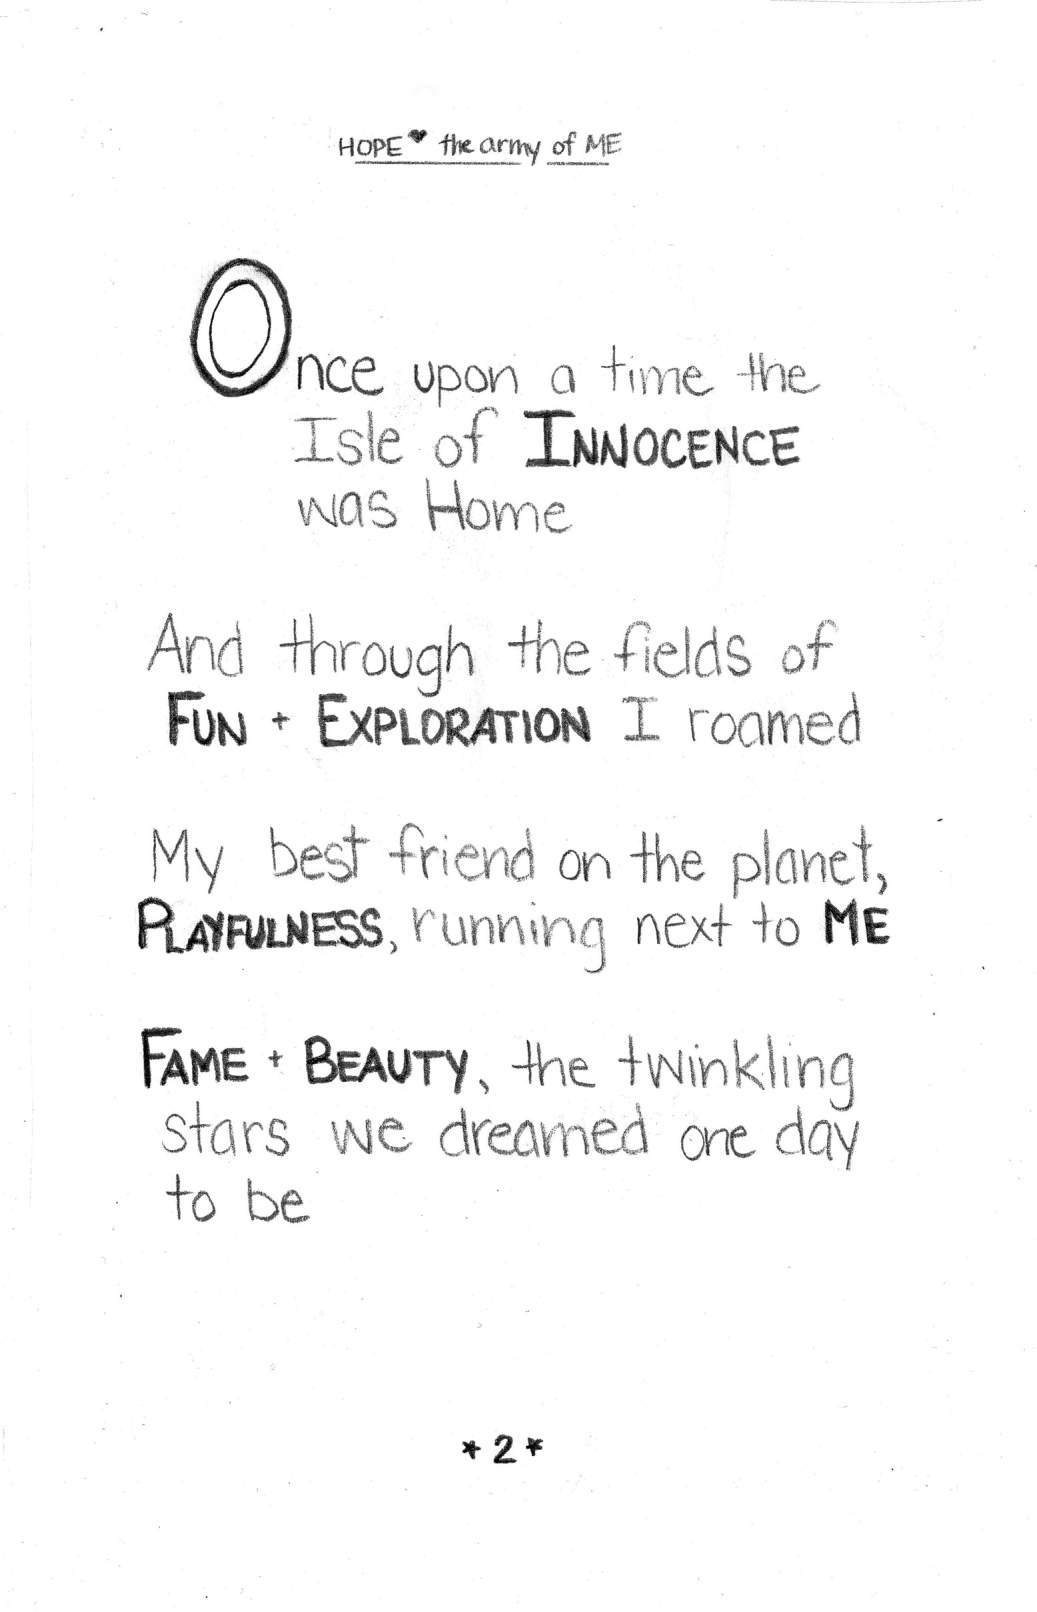 HOPE♥ the army of ME
Once upon a time the
Isle of INNOCENCE
was Home
And through the fields of
FUN + EXPLORATION I roamed
My best friend on the planet,
PLAYFULNESS, running next to ME
FAME + BEAUTY, the twinkling
stars we dreamed one day
to be
*2*